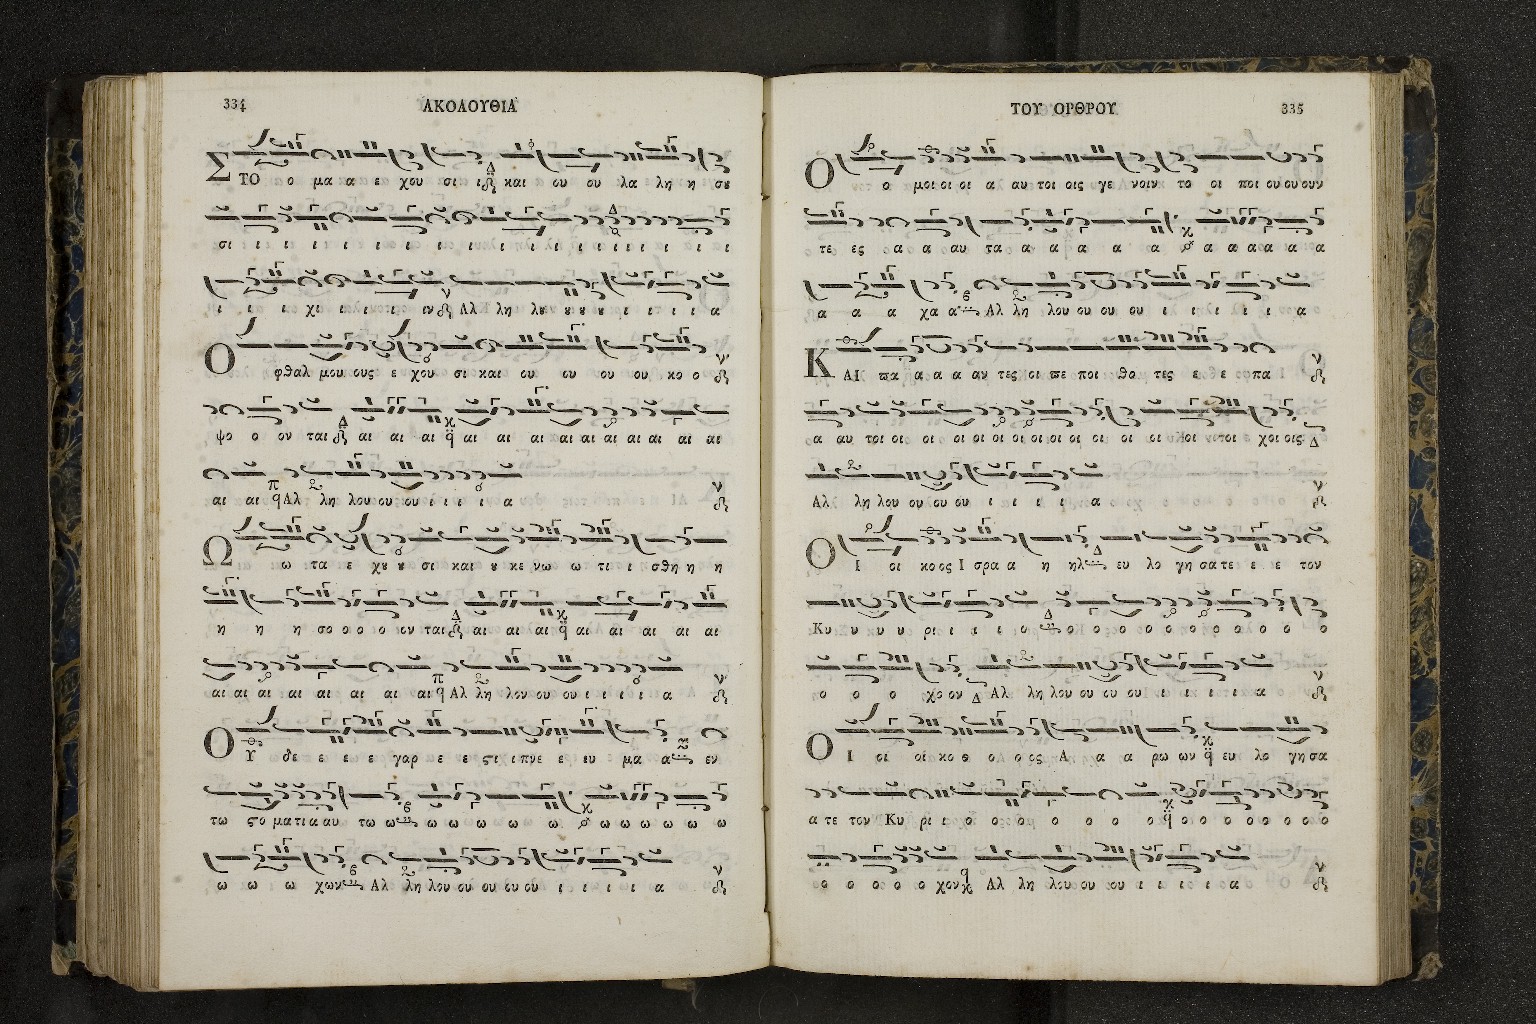 334 ΑΚΟΛΟΥΘΙΑ
ΣΤΟ ο μα α ε χου σι ι και ου ου λα λη η σȣ
σι ι ι ι ι ι ι ι ι ι ι ι ι ι ι ι ι ι ι ι
ι ι ι χι ι ι ι ι ιν Αλ λη λȣ ȣ ȣ ȣ ι ι ι ι α
Ο φθαλ μου ους ε χου σι και ου ου ου ου κο ο
ψο ο ον ται αι αι αι αι αι αι αι αι αι αι αι αι αι
αι αι Αλ λη λου ου ου ι ι ι ι α
Ω ω τα ε χȣ ȣ σι και ȣ κε νω ω τι ι σθη η η
η η η σο ο ο ο ον ται αι αι αι αι αι αι αι αι αι
αι αι αι αι αι αι αι αι Αλ λη λου ου ου ι ι ι ι α
ΟΥ δε ε ε ε γαρ ε ε ϛι ι πνε ε ευ μα α εν
τω ϛο μα τι α αυ τω ω ω ω ω ω ω ω ω ω ω ω
ω ω ω χων Αλ λη λου ου ου ου ου ι ι ι ι α
ΤΟΥ ΟΡΘΡΟΥ 335
Ο ο μοι οι οι α αυ τοι οις γε νοιν το οι ποι ου ου ουν
τε ες α α αυ τα α α α α α α α α α α α
α α α χα α Αλ λη λου ου ου ου ι ι ι ι ι α
ΚΑΙ πα α α α αν τες οι πε ποι θο τες ε ε ε πα
α αυ τοι οι οι οι οι οι οι οι οι οι οι οι οι οι Κοι νιτοι ε χοι οις
Αλ λη λου ου ου ου ι ι ι ι α
ΟΙ οι κο ος Ι σρα α η ηλ ευ λο γη σα τε ε ε τον
Κυ υ υ υ υ ρι ι ι ι ο ο ο ο ο ο ο ο ο ο ο ο
ο ο ο χο ον Αλ λη λου ου ου ου ι ι ι ι α
ΟΙ οι οι κο ο ο ο ος Α α α ρω ων ευ λο γη σα
α τε τον Κυ ρι ι ο ο ο ο ο ο ο ο ο ο ο ο ο ο ο
ο ο ο ο ο χον Αλ λη λου ου ου ι ι ι ι α